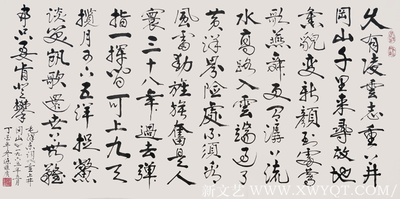 久有凌雲志重上井
岡山千里來尋故地
舊貌變新顏到處鶯
歌燕舞更有潺潺流
水高路入雲端過了
黃洋界險處不須看
風雷動旌旗奮是人
寰三十八年過去彈
指一揮間可上九天
攬月可下五洋捉鱉
談笑凱歌還世上無難
事只要肯登攀
毛澤東詞重上井
岡山一九六五年五月
丁亥年冬
新文艺·WWW.XWYQT.COM